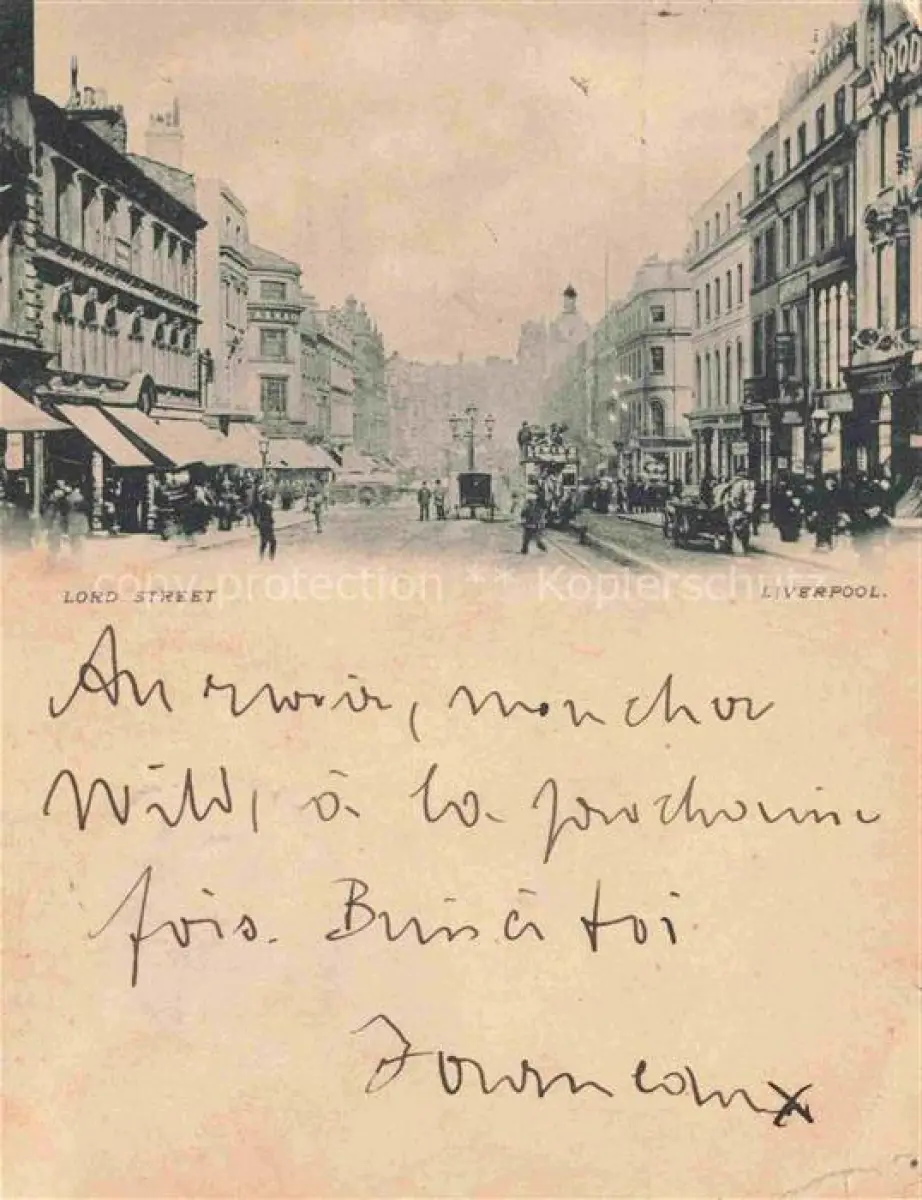 WOOD
LORD STREET
LIVERPOOL.
copy-protection ** Kopierschutz
Au revoir, mon cher
Wild, à la prochaine
fois. Bien à toi